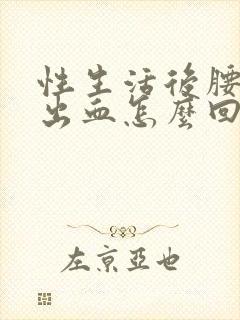 性生活後腰
出血怎麼回
左京亞也